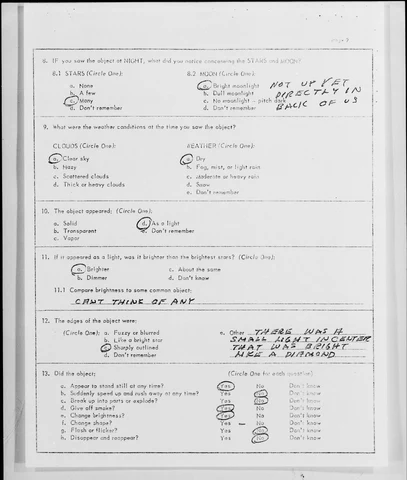 Page 2
8. IF you saw the object at NIGHT, what did you notice concerning the STARS and MOON?
8.1 STARS (Circle One): 8.2 MOON (Circle One):
a. None a. Bright moonlight NOT UP YET
b. A few b. Dull moonlight DIRECTLY IN
c. Many c. No moonlight — pitch dark BACK OF US
d. Don't remember d. Don't remember
9. What were the weather conditions at the time you saw the object?
CLOUDS (Circle One): WEATHER (Circle One):
a. Clear sky a. Dry
b. Hazy b. Fog, mist, or light rain
c. Scattered clouds c. Moderate or heavy rain
d. Thick or heavy clouds d. Snow
e. Don't remember
10. The object appeared: (Circle One):
a. Solid d. As a light
b. Transparent e. Don't remember
c. Vapor
11. If it appeared as a light, was it brighter than the brightest stars? (Circle One):
a. Brighter c. About the same
b. Dimmer d. Don't know
11.1 Compare brightness to some common object:
CANT THINK OF ANY
12. The edges of the object were:
(Circle One): a. Fuzzy or blurred e. Other THERE WAS A
b. Like a bright star SMALL LIGHT IN CENTER
c. Sharply outlined THAT WAS BRIGHT
d. Don't remember LIKE A DIAMOND
13. Did the object: (Circle One for each question)
a. Appear to stand still at any time? Yes No Don't know
b. Suddenly speed up and rush away at any time? Yes No Don't know
c. Break up into parts or explode? Yes No Don't know
d. Give off smoke? Yes No Don't know
e. Change brightness? Yes No Don't know
f. Change shape? Yes No Don't know
g. Flash or flicker? Yes No Don't know
h. Disappear and reappear? Yes No Don't know